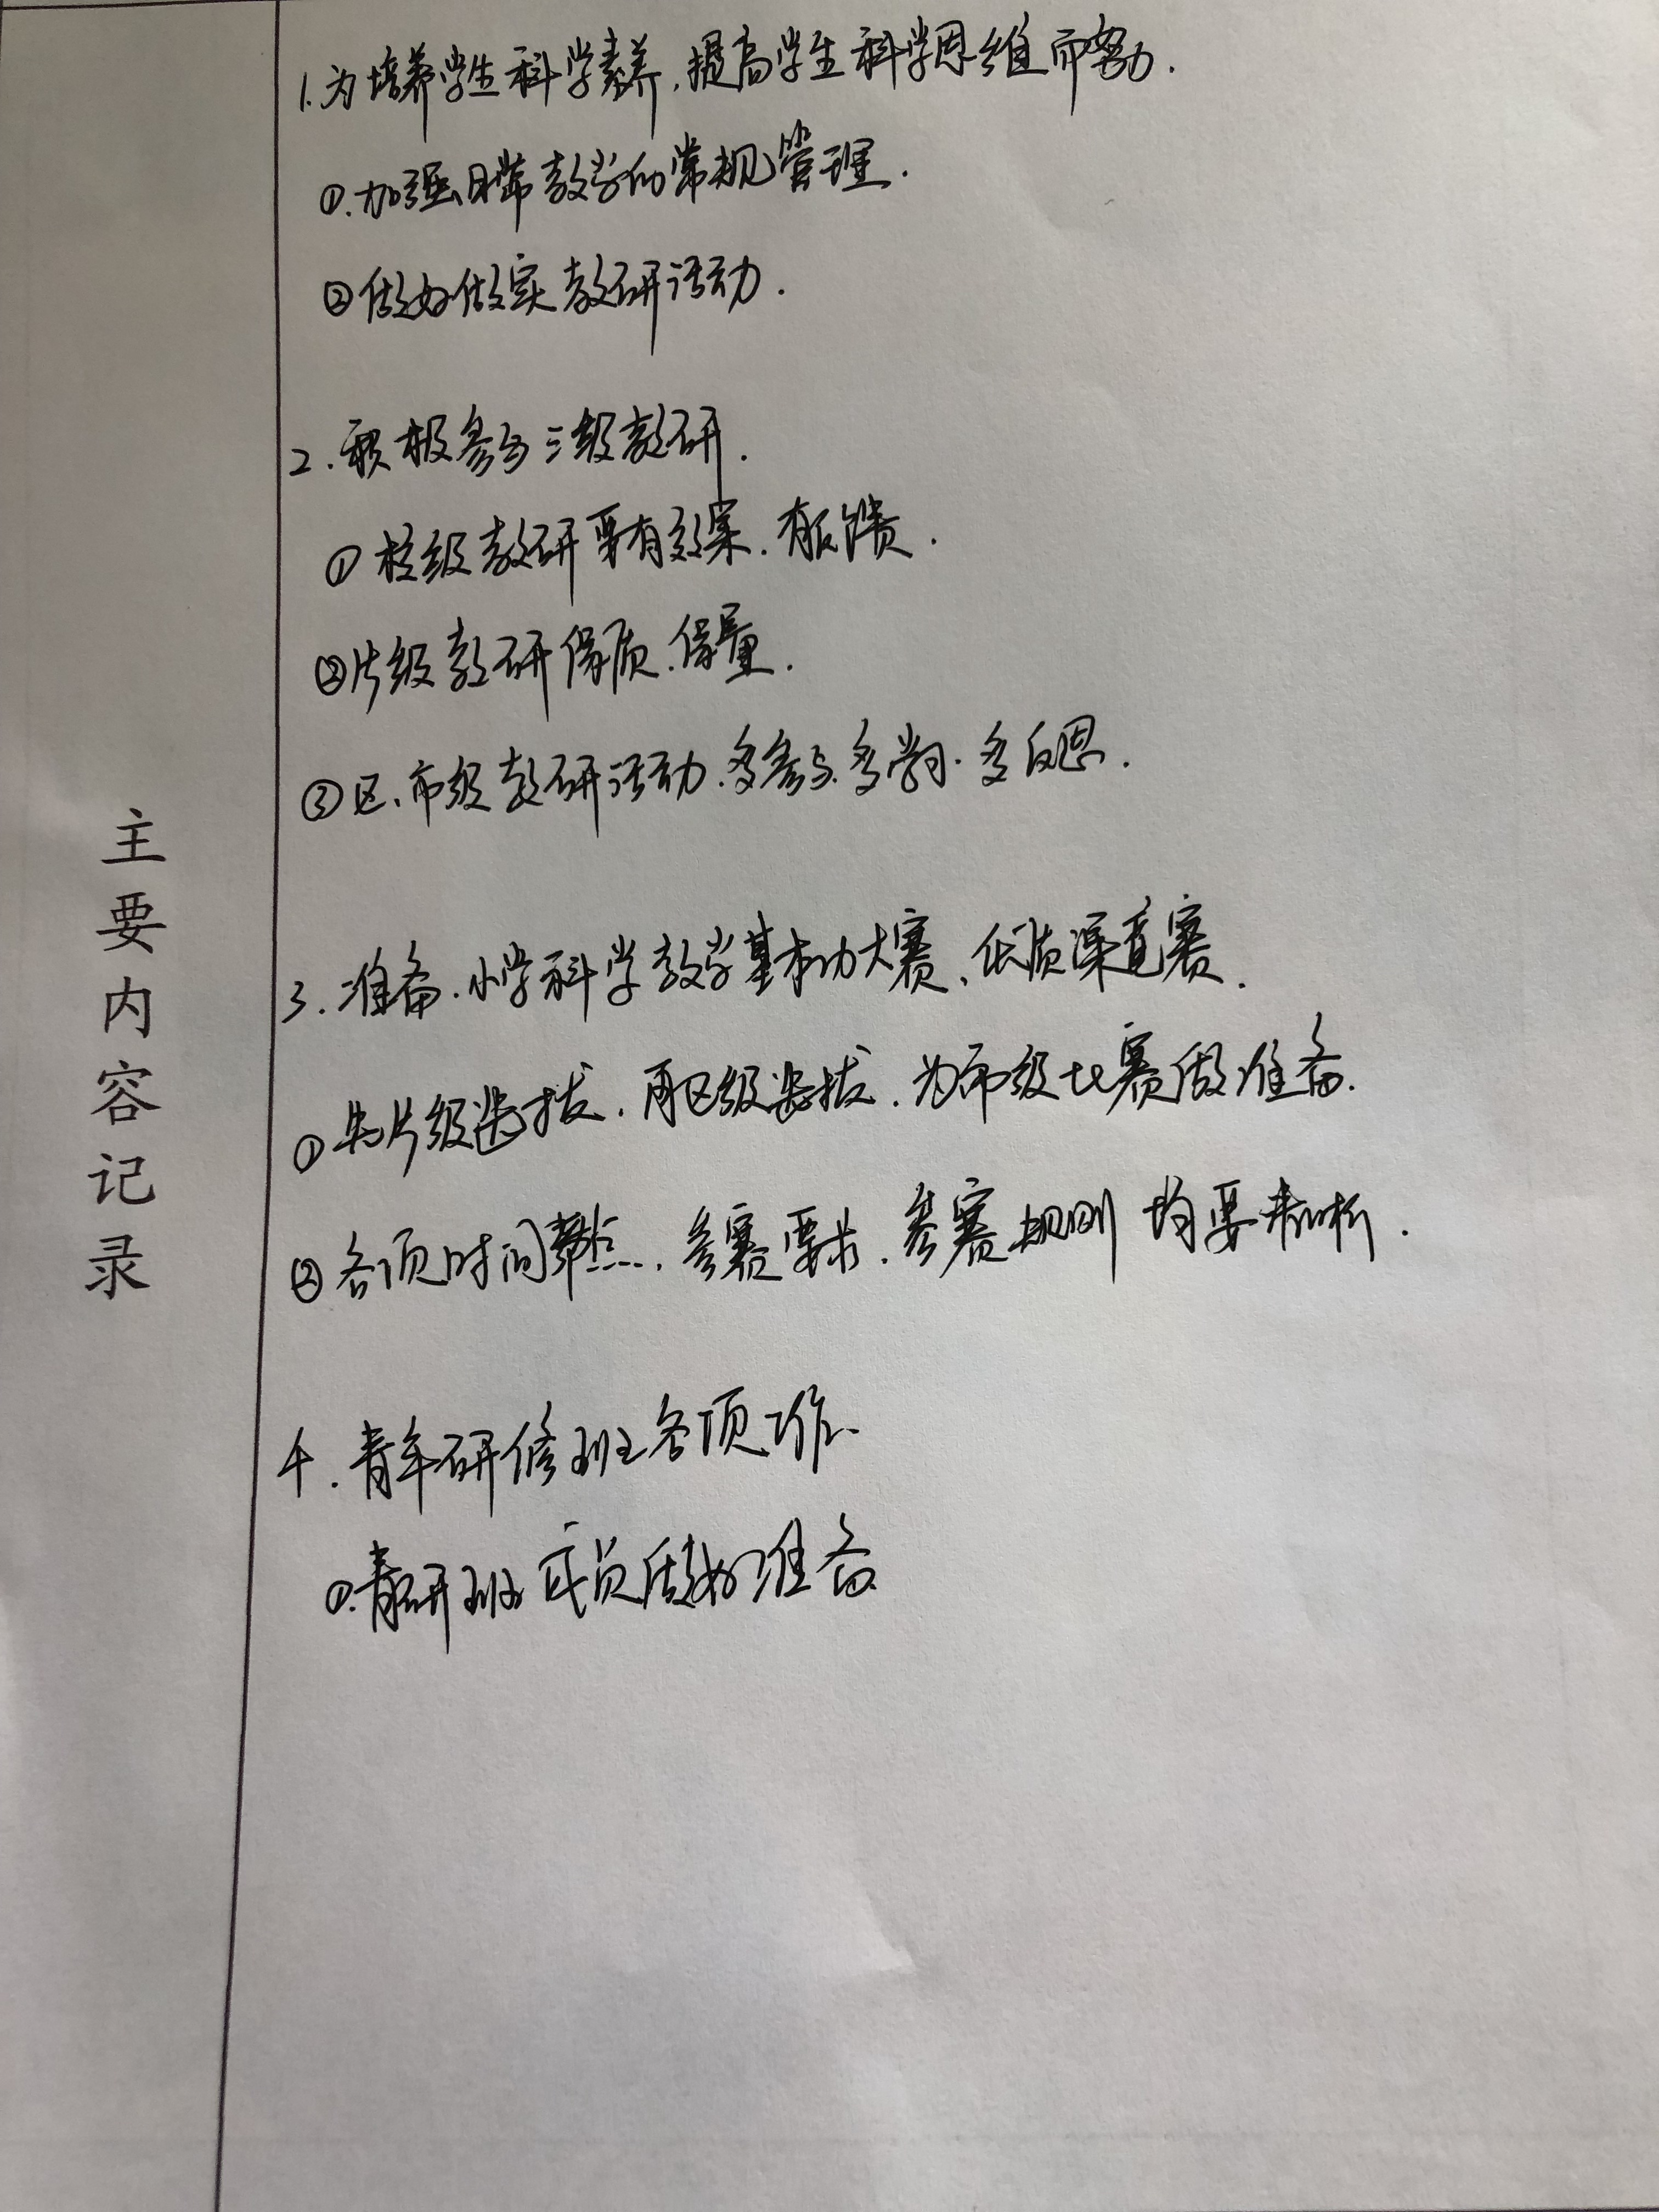 主要内容记录
1.为培养学生科学素养,提高学生科学思维而努力.
①.加强日常教学的常规管理.
②做好做实教研活动.
2.积极参与三级教研.
①校级教研要有效果.有反馈.
②片级教研保质.保量.
③区、市级教研活动.多参与.多学习.多反思.
3.准备.小学科学教学基本功大赛、优质课竞赛.
①先片级选拔.再区级选拔.为市级比赛做准备.
②各项时间节点.参赛要求.参赛规则均要清晰.
4.青年研修班各项工作.
①.青研班成员做好准备.